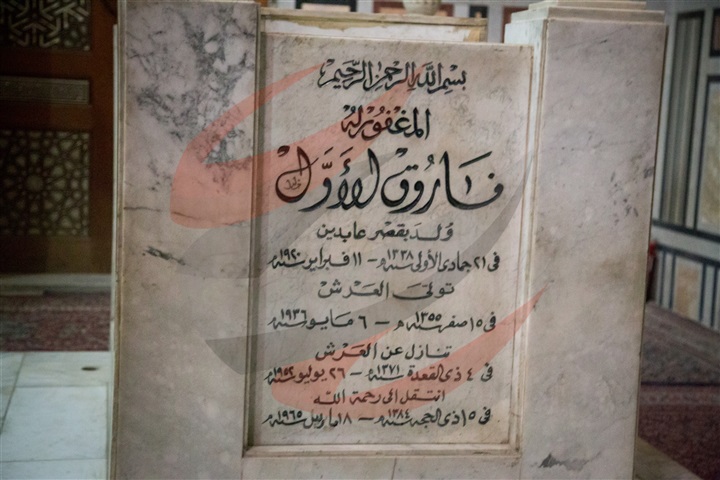 بسم الله الرحمن الرحيم
المغفورله
فاروق الأول
ولد بقصر عابدين
فى ٢١ جمادى الأولى سنة ١٣٣٨ هـ - ١١ فبراير سنة ١٩٢٠
تولى العرش
فى ١٥ صفر سنة ١٣٥٥ هـ - ٦ مايو سنة ١٩٣٦
تنازل عن العرش
فى ٤ ذى القعدة سنة ١٣٧١ هـ - ٢٦ يوليو سنة ١٩٥٢
انتقل الى رحمة الله
فى ١٥ ذى الحجه سنة ١٣٨٤ هـ - ١٨ مارس سنة ١٩٦٥